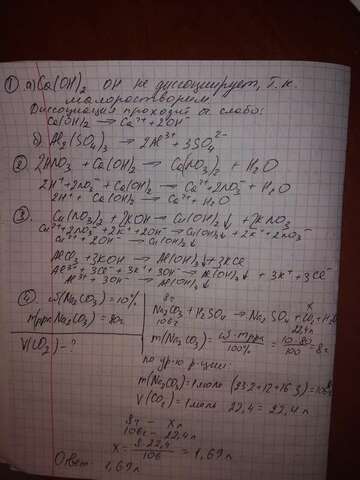 ① а) Ca(OH)₂ он не диссоциирует, т.к.
малорастворим.
Диссоциация проходит слабо:
Ca(OH)₂ → Ca²⁺ + 2OH⁻
б) Al₂(SO₄)₃ → 2Al³⁺ + 3SO₄²⁻
② 2HNO₃ + Ca(OH)₂ → Ca(NO₃)₂ + H₂O
2H⁺ + 2NO₃⁻ + Ca(OH)₂ → Ca²⁺ + 2NO₃⁻ + H₂O
2H⁺ + Ca(OH)₂ → Ca²⁺ + H₂O
③ Cu(NO₃)₂ + 2KOH → Cu(OH)₂↓ + 2KNO₃
Cu²⁺ + 2NO₃⁻ + 2K⁺ + 2OH⁻ → Cu(OH)₂↓ + 2K⁺ + 2NO₃⁻
Cu²⁺ + 2OH⁻ → Cu(OH)₂↓
AlCl₃ + 3KOH → Al(OH)₃↓ + 3KCl
Al³⁺ + 3Cl⁻ + 3K⁺ + 3OH⁻ → Al(OH)₃↓ + 3K⁺ + 3Cl⁻
Al³⁺ + 3OH⁻ → Al(OH)₃↓
④ ω(Na₂CO₃) = 10%
mр.ра Na₂CO₃ = 80г
V(CO₂) - ?
8г x
Na₂CO₃ + H₂SO₄ → Na₂SO₄ + CO₂ + H₂O
106г 22,4л
m(Na₂CO₃) = ω · mр.ра / 100% = 10 · 80 / 100 = 8г
по ур-ю р-ции
m(Na₂CO₃) = 1моль (23·2+12+16·3) = 106г
V(CO₂) = 1моль 22,4 = 22,4л
8г - xл
106г - 22,4л
x = 8·22,4 / 106 = 1,69л
Ответ 1,69л